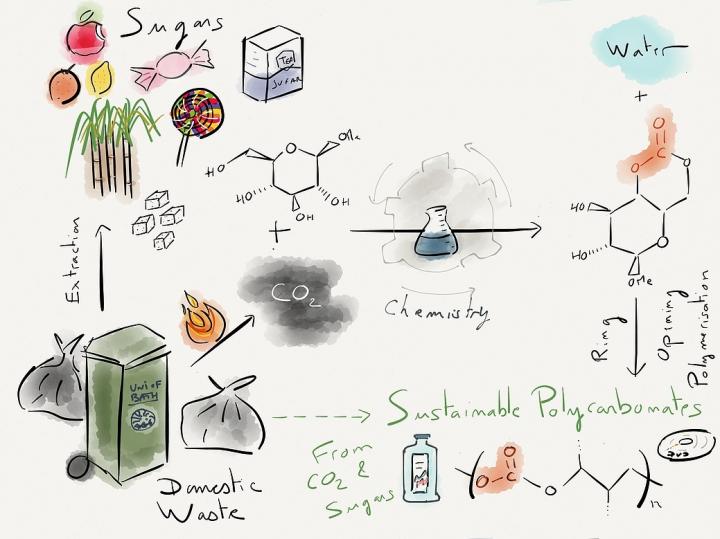 Sugars
TEA
SUGAR
Water
+
O
O
C
O
HO
HO
O
OMe
O
OMe
HO
HO
OH
OH
+
CO2
Chemistry
Extraction
Ring
Opining
Polymerisation
UNI OF
BATH
Domestic
Waste
Sustainable Polycarbonates
From
CO2 &
Sugars
O
O
C
O
n
DVD